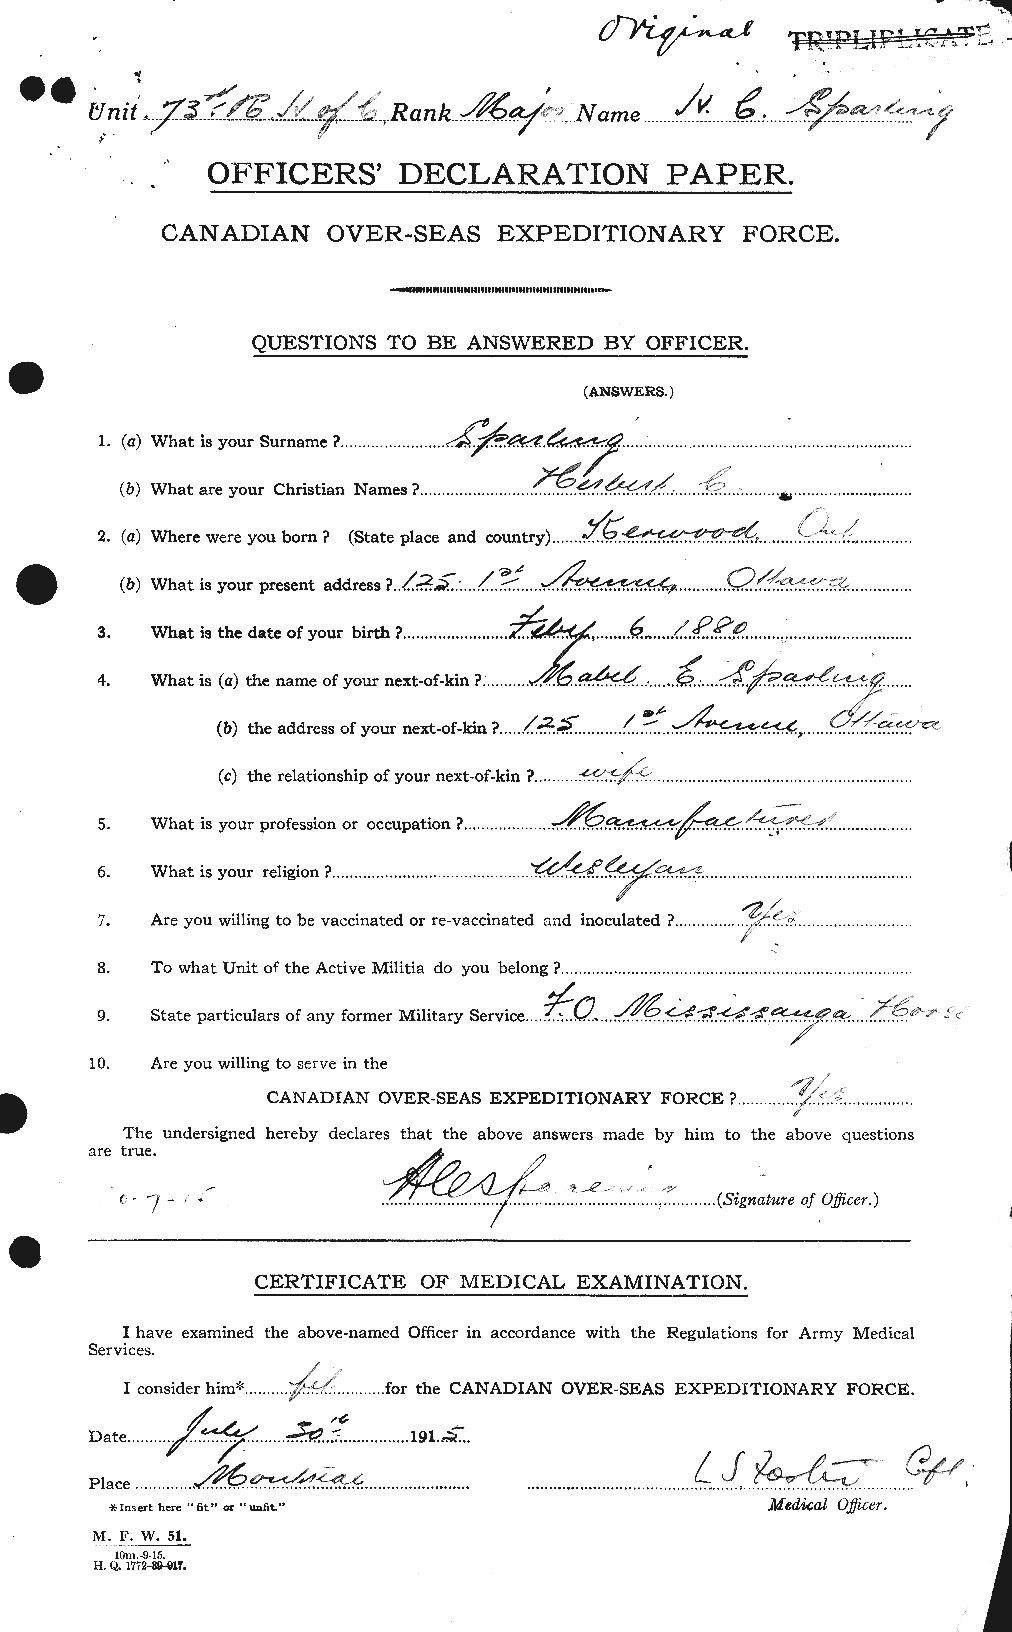 Original TRIPLIPLICATE
Unit. 73rd R H of C Rank Major Name H. C. Sparling
OFFICERS' DECLARATION PAPER.
CANADIAN OVER-SEAS EXPEDITIONARY FORCE.
QUESTIONS TO BE ANSWERED BY OFFICER.
(ANSWERS.)
1. (a) What is your Surname ? Sparling
(b) What are your Christian Names ? Herbert C.
2. (a) Where were you born ? (State place and country) Kerwood, Ont.
(b) What is your present address ? 125 1st Avenue, Ottawa
3. What is the date of your birth ? Feby 6 1880
4. What is (a) the name of your next-of-kin ? Mabel. E. Sparling
(b) the address of your next-of-kin ? 125 1st Avenue, Ottawa
(c) the relationship of your next-of-kin ? wife
5. What is your profession or occupation ? Manufacturer
6. What is your religion ? Wesleyan
7. Are you willing to be vaccinated or re-vaccinated and inoculated ? Yes
8. To what Unit of the Active Militia do you belong ?
9. State particulars of any former Military Service F.O. Mississauga Horse
10. Are you willing to serve in the
CANADIAN OVER-SEAS EXPEDITIONARY FORCE ? Yes
The undersigned hereby declares that the above answers made by him to the above questions
are true.
0-7-15 (Signature of Officer.)
CERTIFICATE OF MEDICAL EXAMINATION.
I have examined the above-named Officer in accordance with the Regulations for Army Medical
Services.
I consider him* fit for the CANADIAN OVER-SEAS EXPEDITIONARY FORCE.
Date July 30th 1915.
Place Montreal L S Foster Cpt.
*Insert here "fit" or "unfit." Medical Officer.
M. F. W. 51.
10m.-9-15.
H. Q. 1772-89-917.